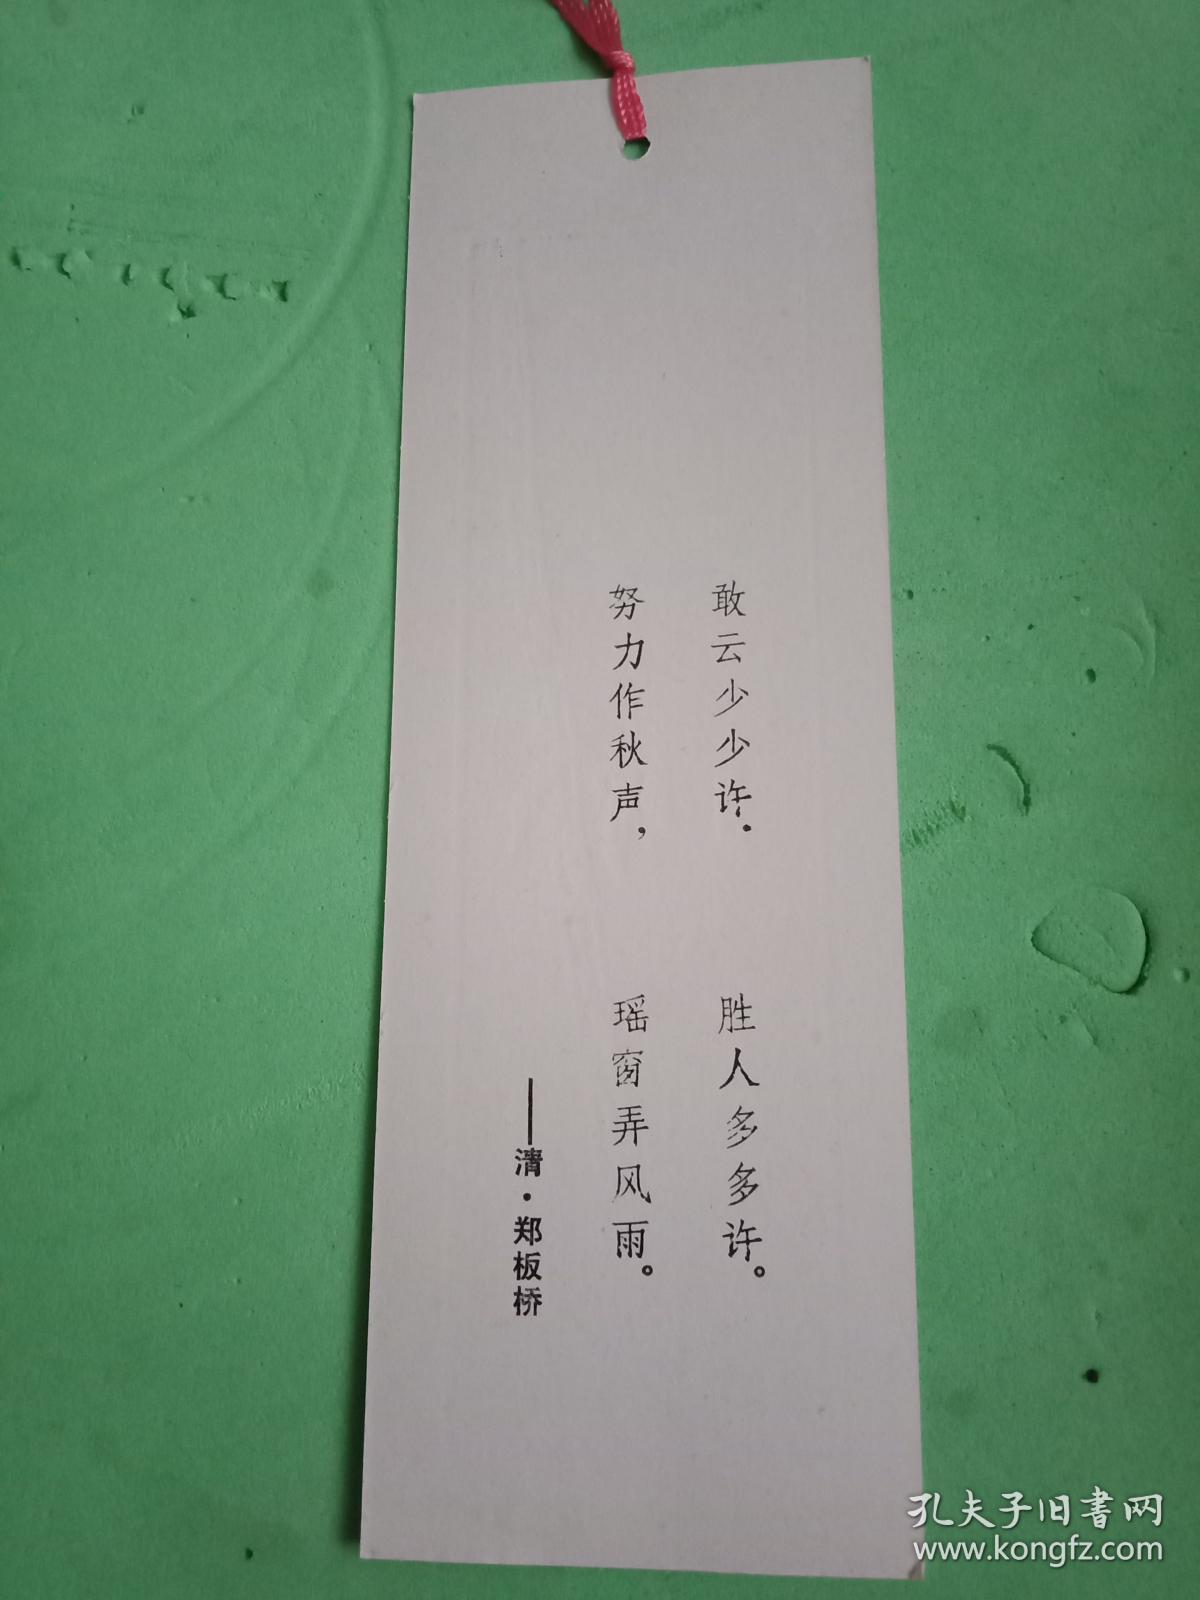 敢云少少许. 胜人多多许。
努力作秋声, 瑶窗弄风雨。
——清·郑板桥
孔夫子旧書网
www.kongfz.com